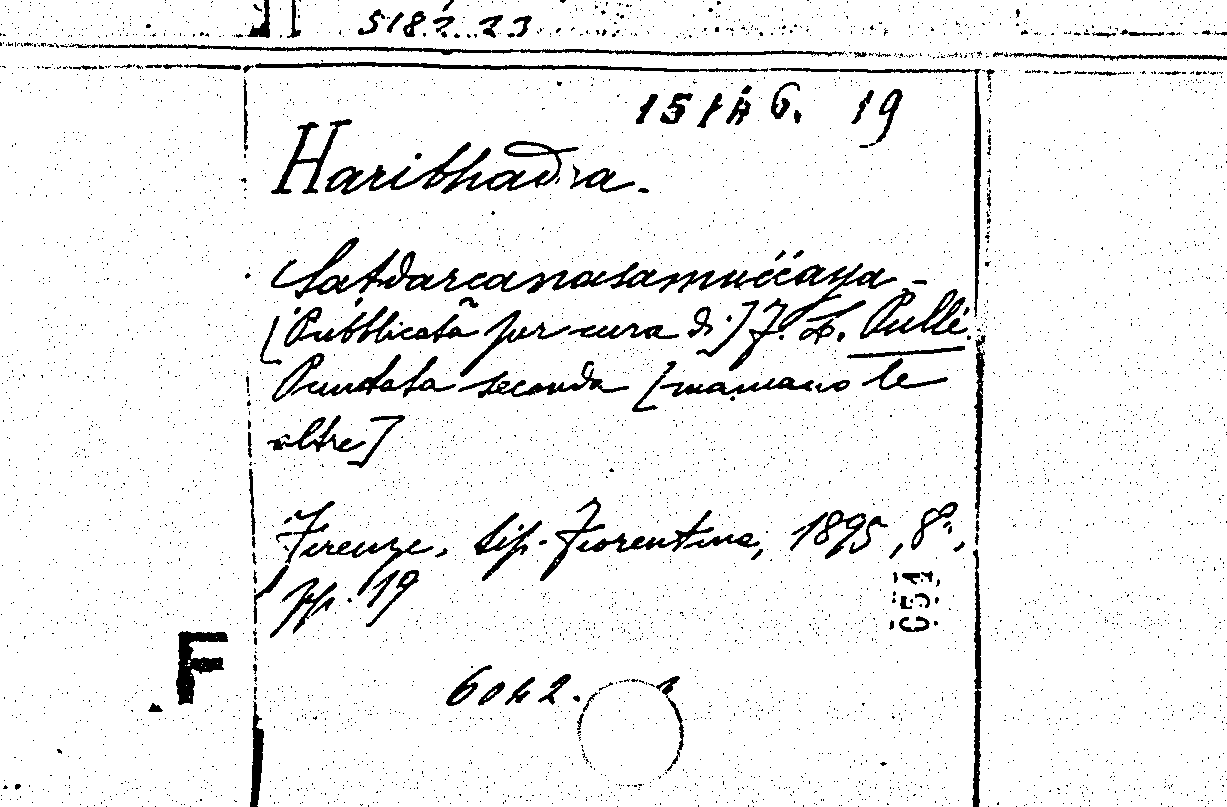 5182. 23
19
Haribhadra.
Satdarcanasamuććaya -
[Pubblicata per cura di] F. L. Pullé.
Puntata seconda [mancano le
altre]
Firenze, tip. Fiorentina, 1895, 8º.,
pp. 19
C51
F
6042.